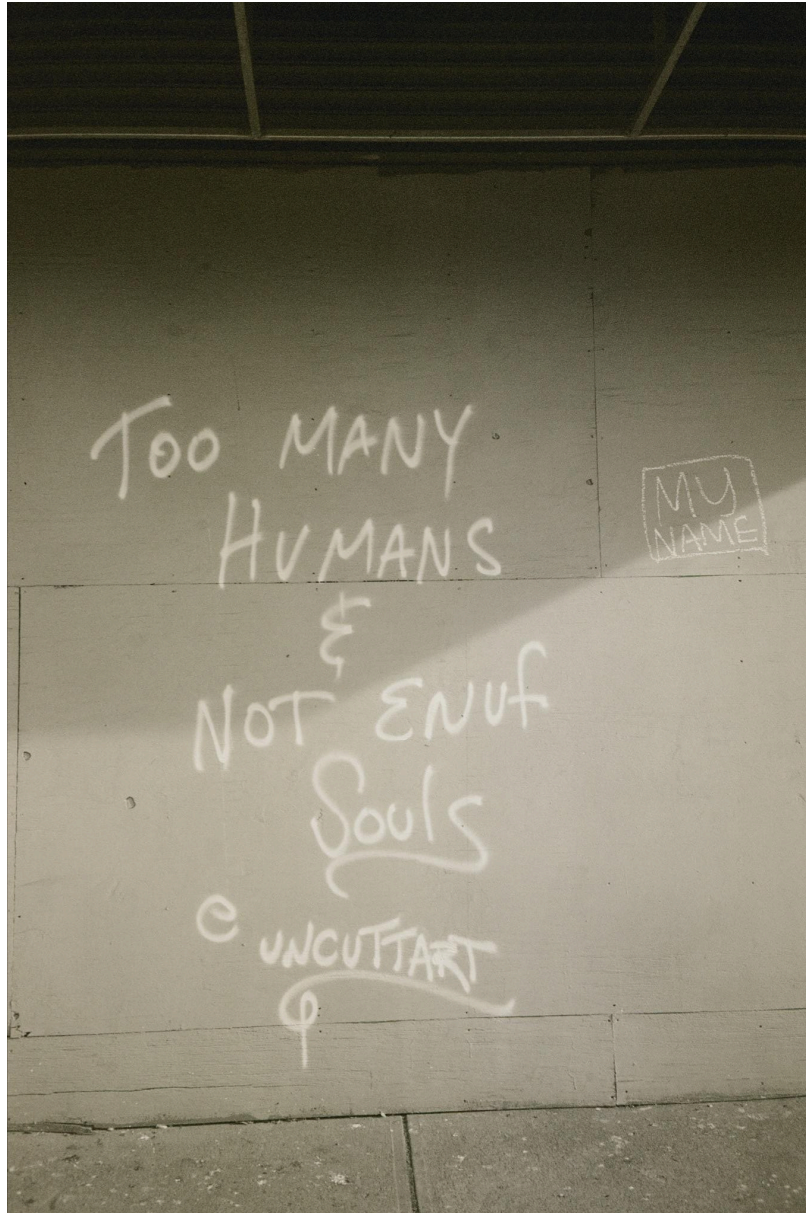 Too MANY
HUMANS
&
NOT ENUf
Souls
@ UNCUTTART
MY
NAME